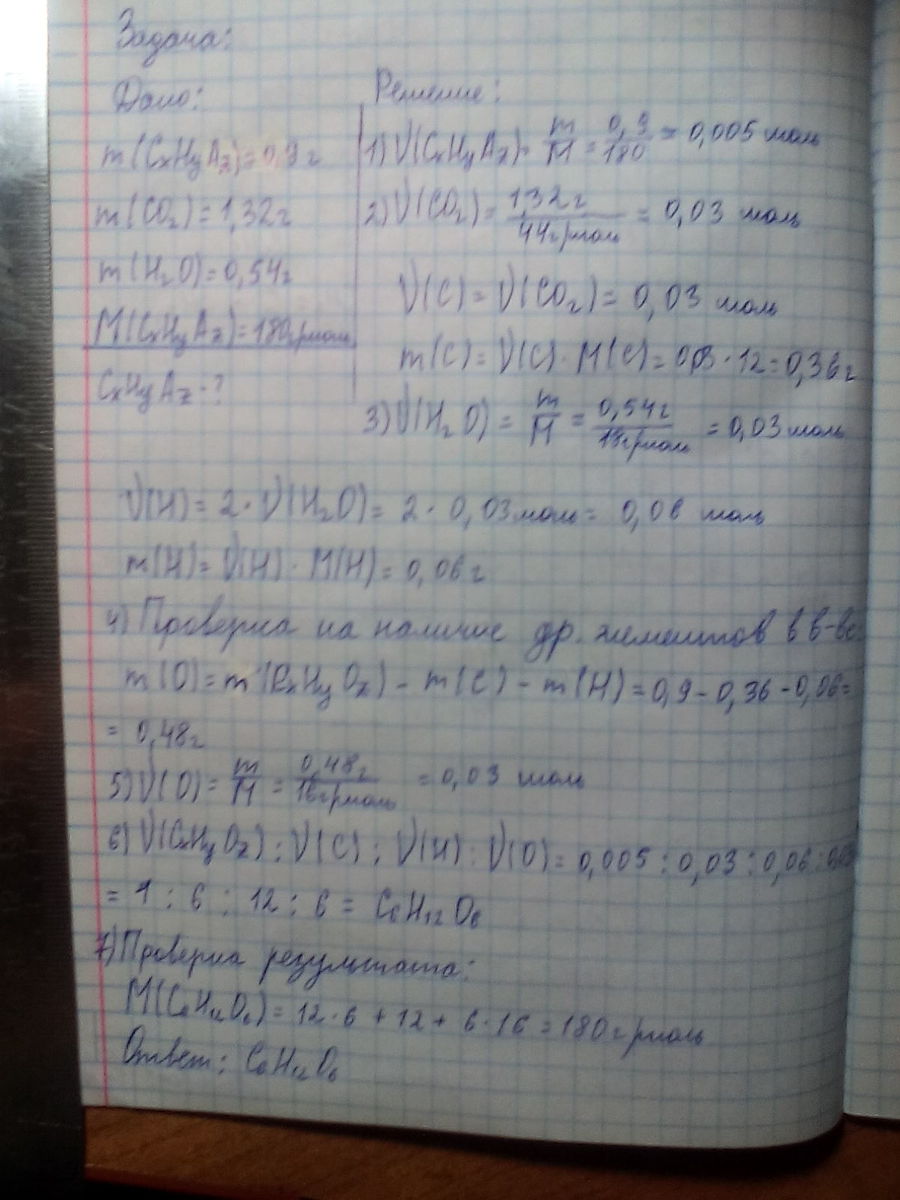 Задача:
Дано:
Решение:
m(CxHyAz)=0,9 г
m(CO₂)=1,32 г
m(H₂O)=0,54 г
M(CxHyAz)=180 г/моль
CxHyAz-?
1) ν(CxHyAz)= m/M = 0,9/180 = 0,005 моль
2) ν(CO₂)= 1,32 г/44 г/моль = 0,03 моль
ν(C) = ν(CO₂) = 0,03 моль
m(C) = ν(C) · M(C) = 0,03 · 12 = 0,36 г
3) ν(H₂O) = m/M = 0,54 г/18 г/моль = 0,03 моль
ν(H) = 2 · ν(H₂O) = 2 · 0,03 моль = 0,06 моль
m(H) = ν(H) · M(H) = 0,06 г
4) Проверка на наличие др. элементов в в-ве
m(O) = m(CxHyOz) - m(C) - m(H) = 0,9 - 0,36 - 0,06 =
= 0,48 г
5) ν(O) = m/M = 0,48 г/16 г/моль = 0,03 моль
6) ν(CxHyOz) : ν(C) : ν(H) : ν(O) = 0,005 : 0,03 : 0,06 : 0,03
= 1 : 6 : 12 : 6 = C₆H₁₂O₆
7) Проверка результата:
M(C₆H₁₂O₆) = 12 · 6 + 12 + 6 · 16 = 180 г/моль
Ответ: C₆H₁₂O₆